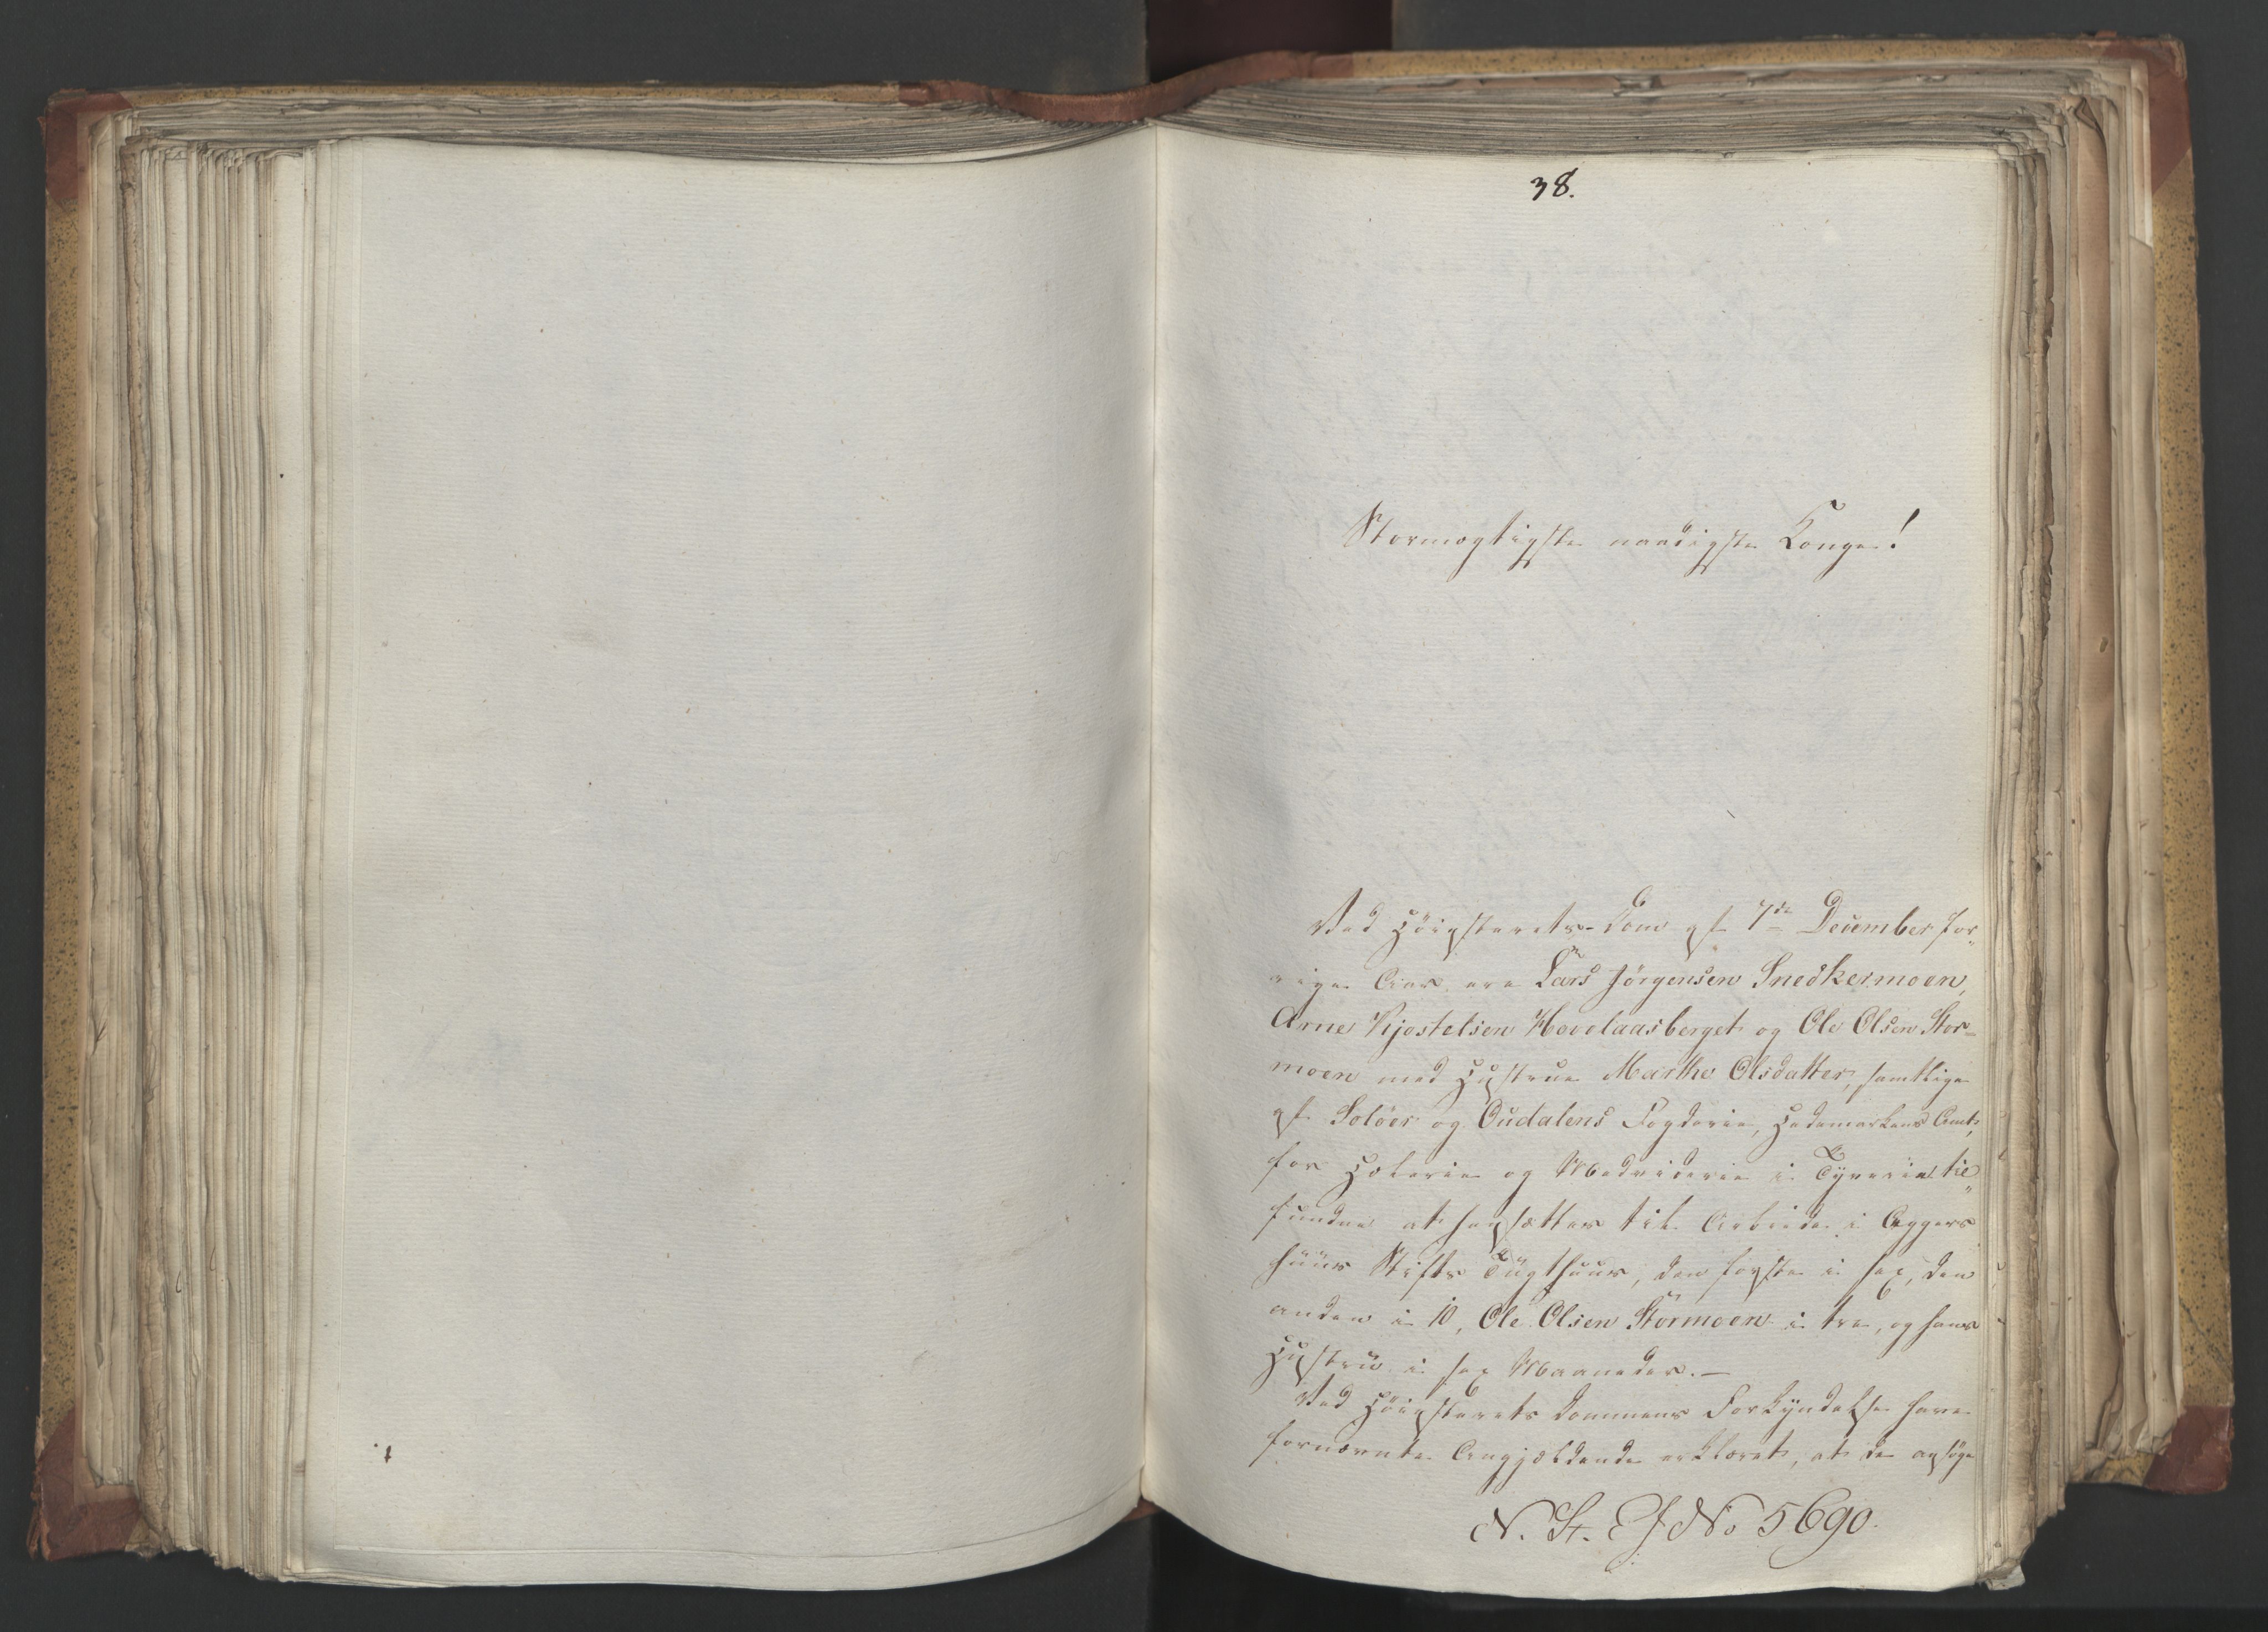 38.
Stormægtigste naadigste Konge!
Ved Høiesterets-Dom af 7de December for„
rige Aar ere Lars Jørgensen Snedkermoen,
Arne Kjostelsen Hovelaasberget og Ole Olsen Stor-
moen med Hustrue Marthe Olsdatter, samtlige
af Soløer og Oudalens Fogderie, Hedemarkens Amt,
for Hælerie og Medviderie i Tyverie til„
fundne at hensættes til Arbeide i Aggers
huus Stifts Tugthuus, den første i sex, den
anden i 10, Ole Olsen Stormoen i tre, og hans
Hustru i sex Maaneder. —
Ved Høiesterets Dommens Forkyndelse have
fornævnte Angjældende erklæret, at de ansøge
N. St. E J No 5690.